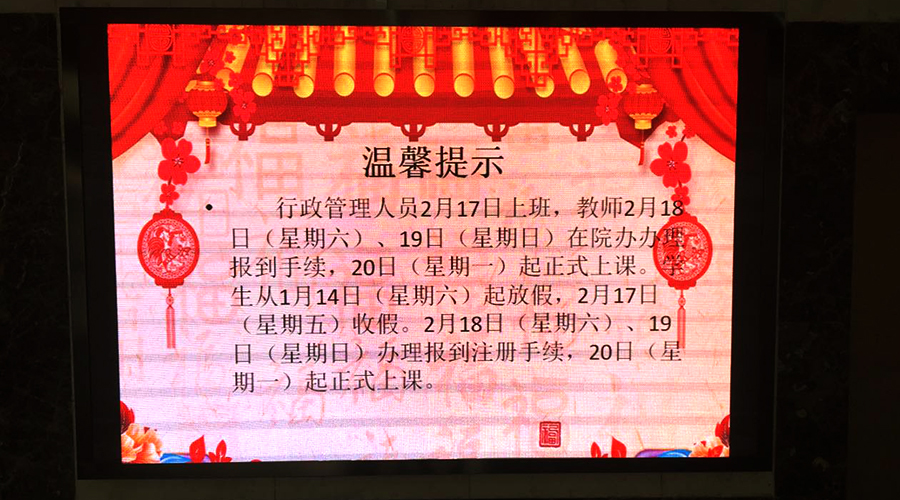 温馨提示
• 行政管理人员2月17日上班，教师2月18
日（星期六）、19日（星期日）在院办办理
报到手续，20日（星期一）起正式上课。学
生从1月14日（星期六）起放假，2月17日
（星期五）收假。2月18日（星期六）、19
日（星期日）办理报到注册手续，20日（星
期一）起正式上课。
福